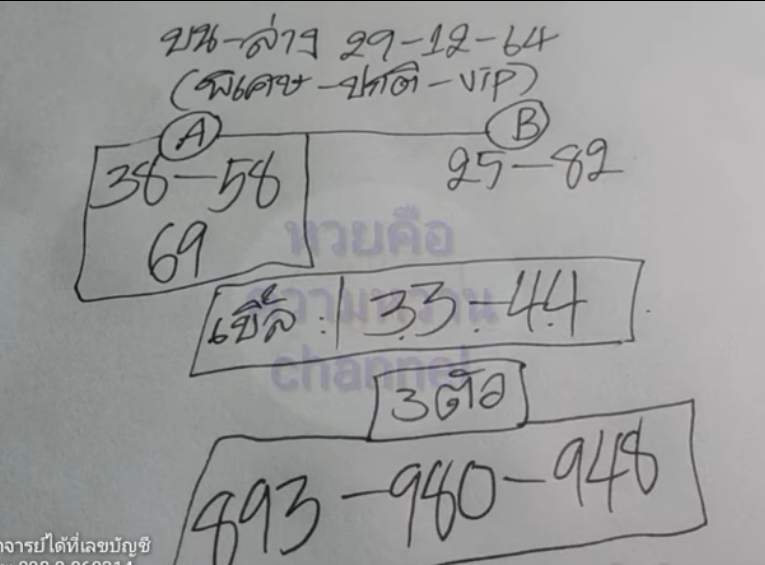 บน-ล่าง 29-12-64
(พิเศษ-ปกติ-VIP)
A B
38-58 25-82
69
หวยคือ
ความหวาน
channel
เบิ้ล : 33-44
3ตัว
893-980-948
จารย์ได้ที่เลขบัญชี